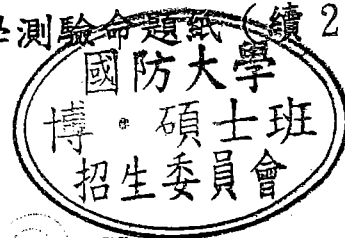 測驗命題紙(續2
國防大學
博·碩士班
招生委員會